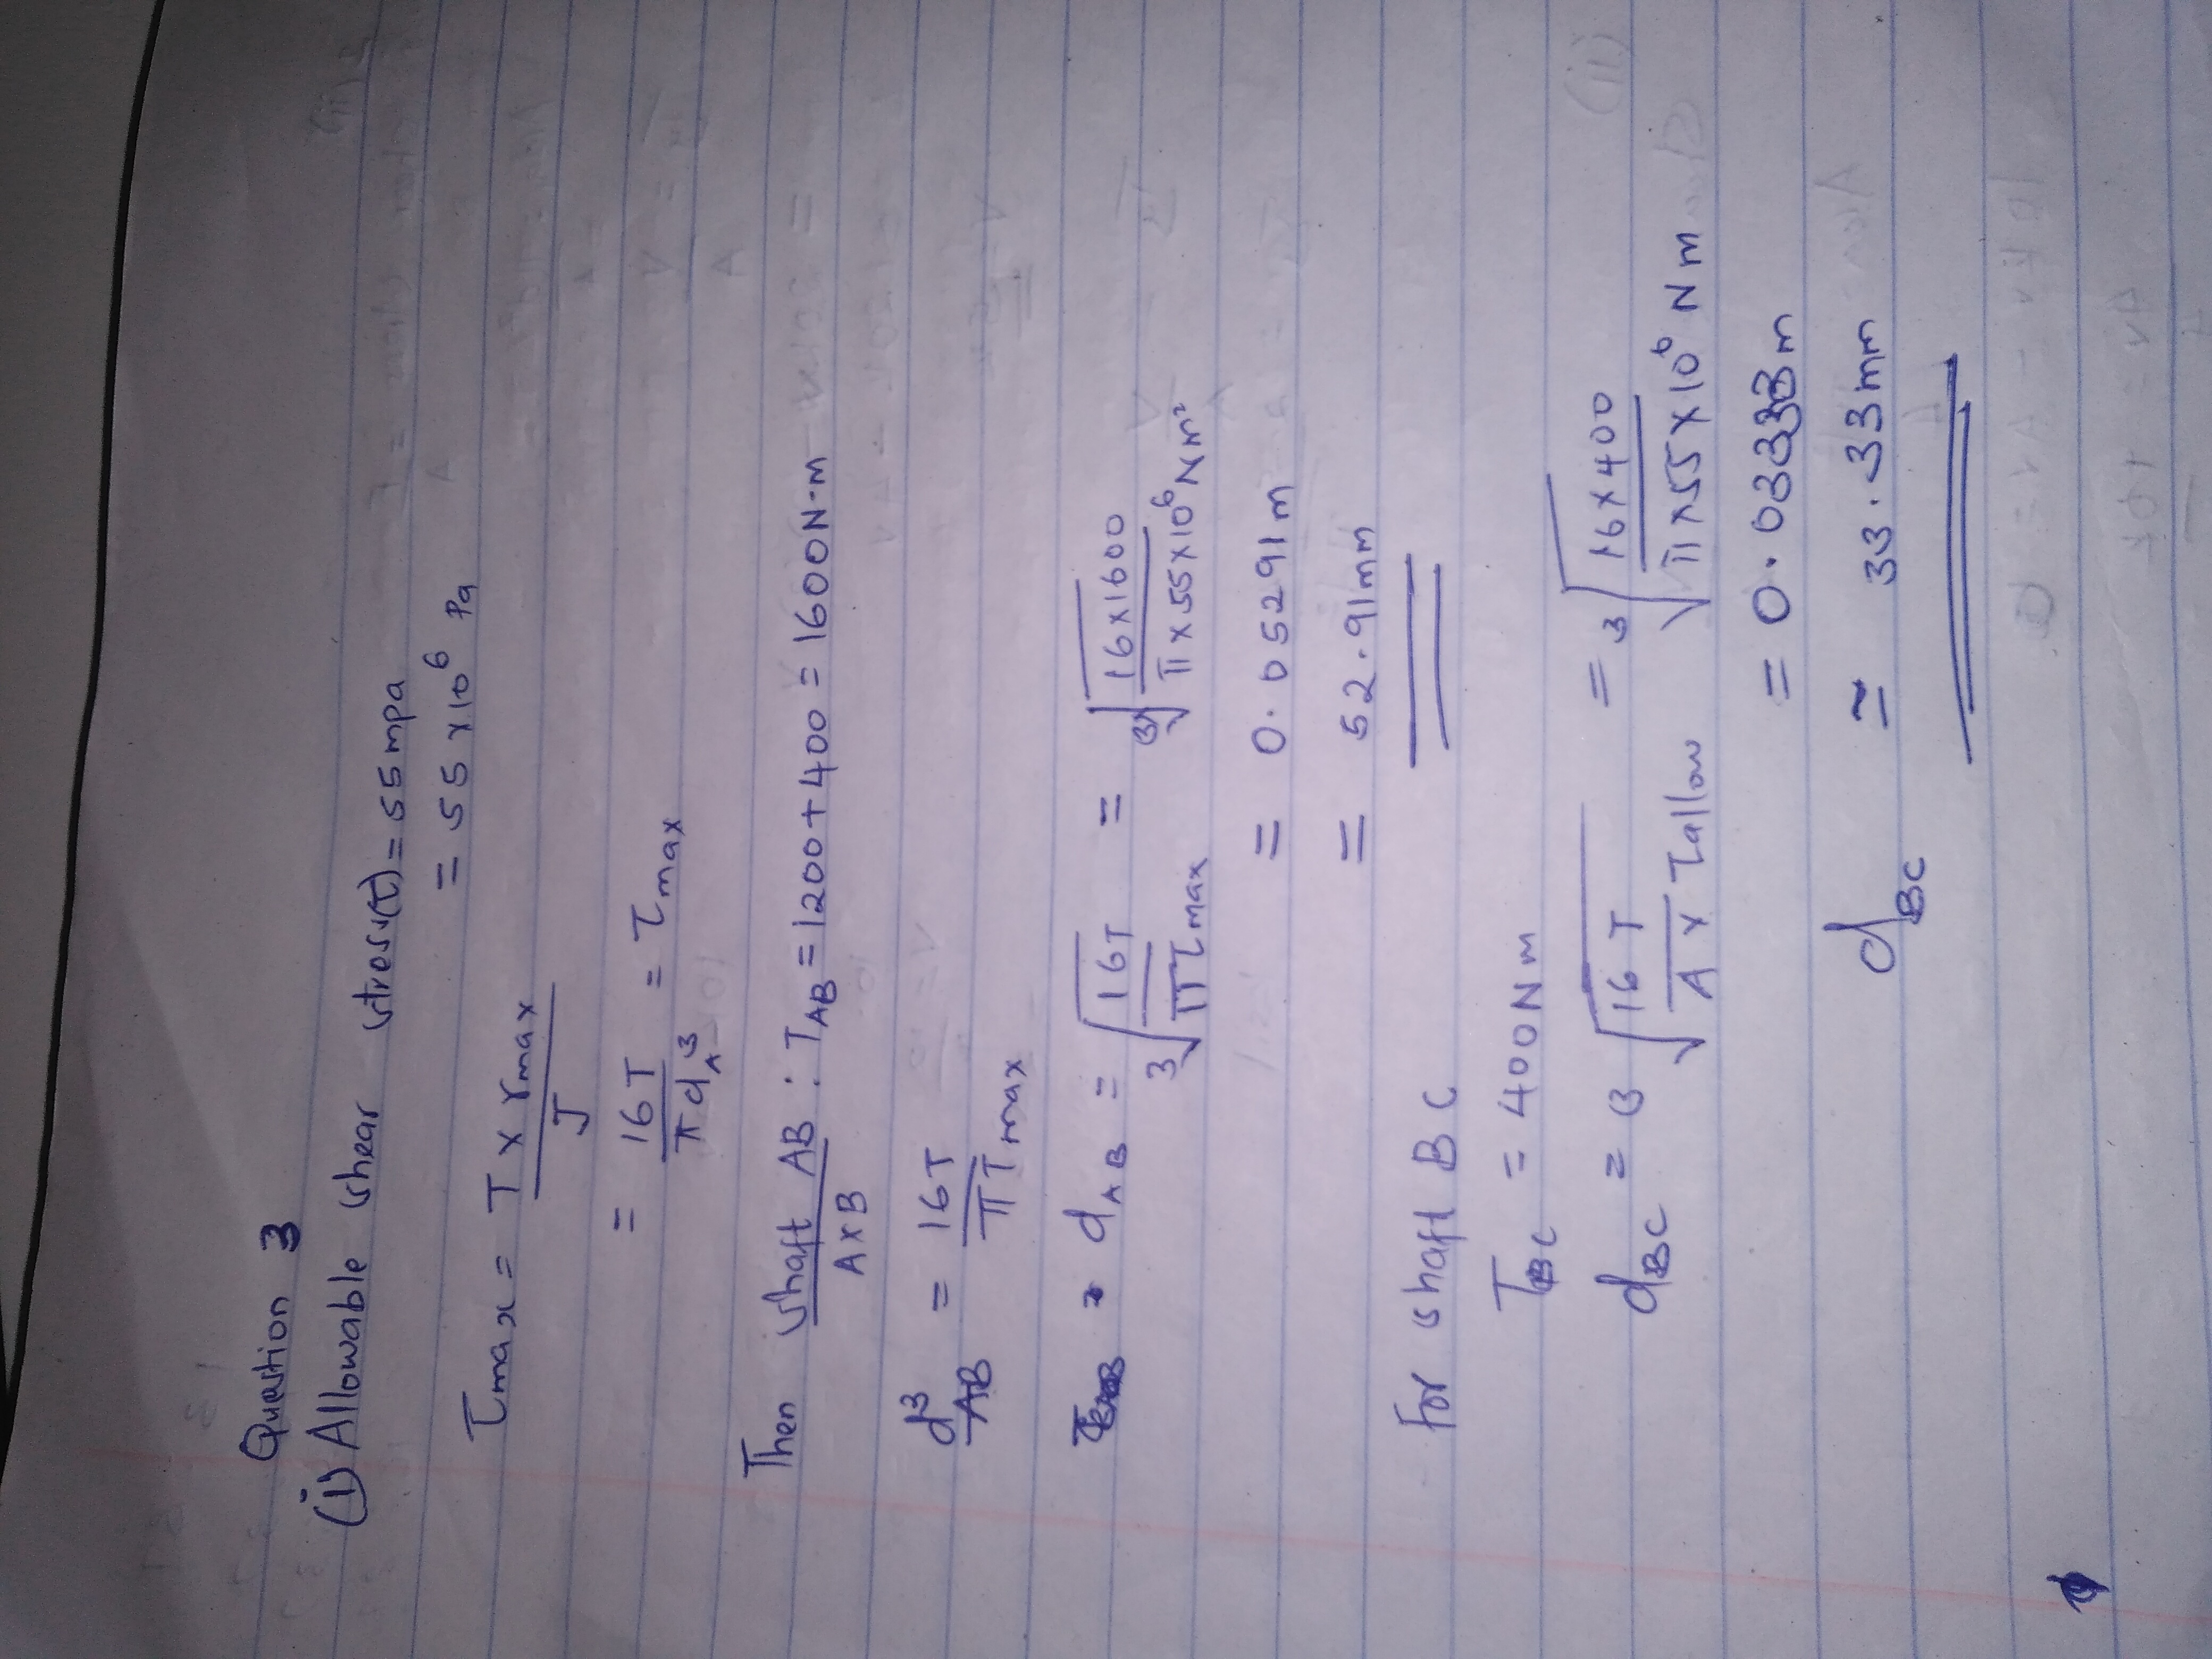 Question 3
(i) Allowable shear stress(τ) = 55mpa
= 55 x10⁶ Pa
τmax = T x rmax / J
= 16T / πd_A³ = τmax
Then shaft AB : T_AB = 1200+400 = 1600N-m
AxB
d³_AB = 16T / πTmax
d_AB = ³√(16T / πτmax) = ³√(16x1600 / πx55x10⁶Nm²)
= 0.05291m
= 52.91mm
For shaft BC
T_BC = 400Nm
d_BC = 3√(16T / A x τallow) = ³√(16x400 / πx55x10⁶Nm)
= 0.0333m
d_BC ≃ 33.33mm